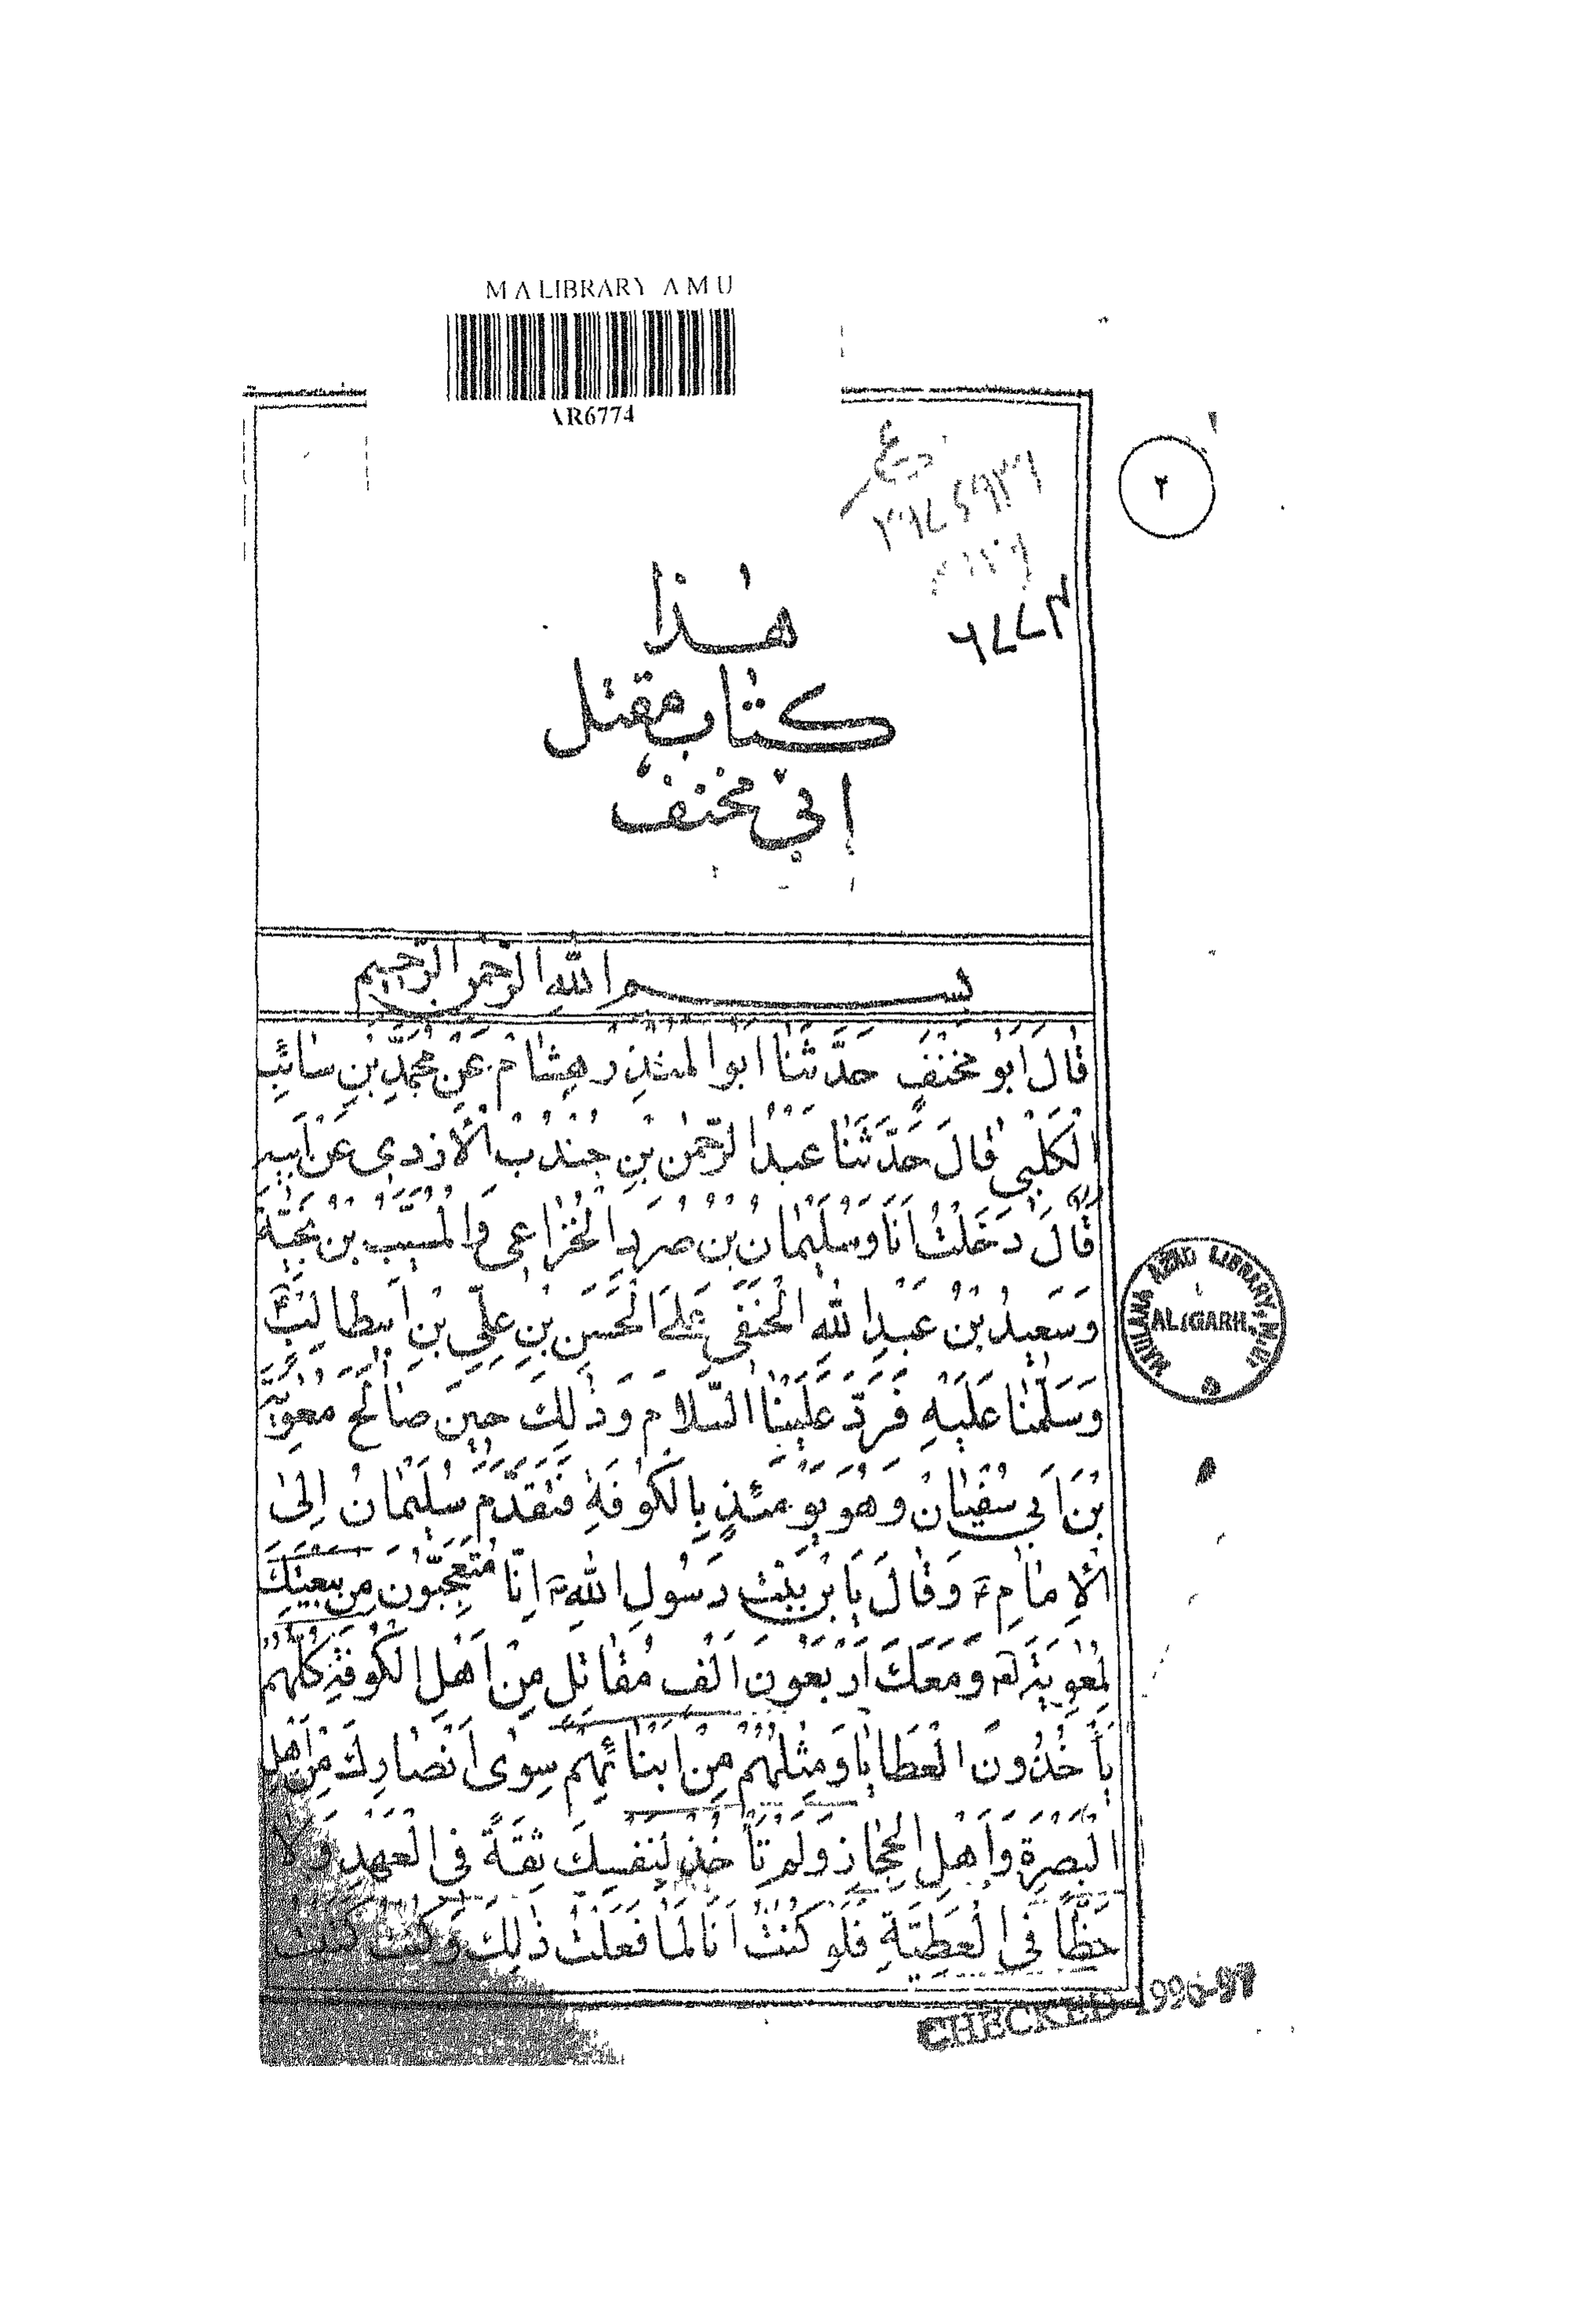 M A LIBRARY A M U
AR6774
٢
هٰذا
كتاب مقتل
ابي مخنف
٦٧٧٤
بسم الله الرحمن الرحيم
قالَ اَبُو مِخْنَفٍ حَدَّثَنا ابوالمنذِر هِشام عَنْ مُحَمَّدِ بْنِ سائِب
الْكَلْبِي قالَ حَدَّثَنا عَبْدُ الرّحمٰن بْنِ جُنْدُبْ الْاَزدى عَنْ اَبيهِ
قالَ دَخَلْتُ اَنَا وَسُلَيْمانُ بْنُ صُرَدِ الْخُزاعِى وَالْمُسَيَّبُ بْنُ نَجَبَةَ
وَسَعيدُ بْنُ عَبْدِ اللهِ الْحَنَفى عَلَى الْحَسَنِ بْنِ عَلِيِّ بْنِ اَبيطالِبٍ
وَسَلَّمْنا عَلَيْهِ فَرَدَّ عَلَيْنَا السَّلامَ وَذٰلِكَ حينَ صالَحَ مُعٰوِيَةَ
بْنَ اَبي سُفْيانَ وَهُوَ يَوْمَئِذٍ بِالْكُوفَةِ فَتَقَدَّمَ سُلَيْمانُ اِلىَ
الْاِمامِ ع وَقالَ يَابْنَ بِنْتِ رَسُولِ اللهِ ص اِنّا مُتَعَجِّبُونَ مِنْ بَيْعَتِكَ
لِمُعٰوِيَةَ له وَمَعَكَ اَرْبَعُونَ اَلْف مُقاتِل مِنْ اَهْلِ الْكُوفَةِ كُلُّهُمْ
يَأْخُذُونَ الْعَطايا وَمِثْلُهُمْ مِنْ اَبْنائِهِمْ سِوٰى اَنْصارِكَ مِنْ اَهْلِ
الْبَصْرَةِ وَاَهْلِ الْحِجازِ وَلَمْ تَأْخُذْ لِنَفْسِكَ ثِقَةً فِى الْعَهْدِ وَلا
حَظًّا فِى الْعَطِيَّةِ فَلَوْ كُنْتُ اَنَا لَمَا فَعَلْتُ ذٰلِكَ وَكُنْتُ كَتَبْتُ
MAULANA AZAD LIBRARY
ALIGARH
CHECKED 1996-97